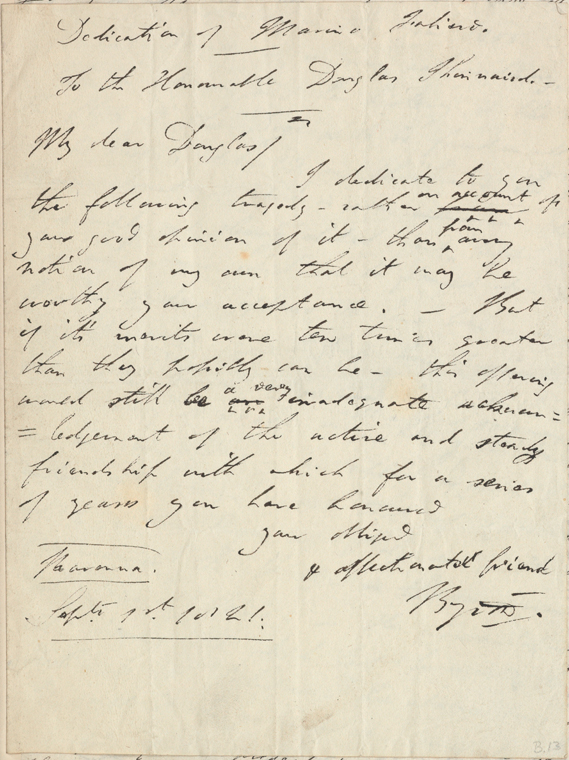 Dedication of Marino Faliero.
To the Honourable Douglas Kinnaird. —
My dear Douglas /
I dedicate to you
the following tragedy – rather on account of
your good opinion of it – than from any
notion of my own that it may be
worthy your acceptance. — But
if it's merits were ten times greater
than they possibly can be – this offering
would still be a very inadequate acknow=
=ledgement of the active and steady
friendship with which for a series
of years you have honoured
your obliged
& affectionate friend
Byron.
Ravenna.
Septr. 1st. 1821.
B.13